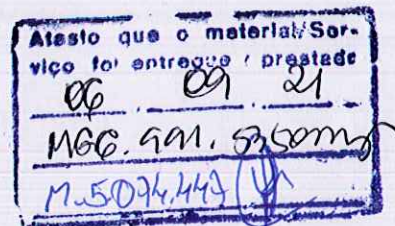 Atesto que o material/Ser-
viço foi entregue / prestado
06 . 09 . 21
M.5.074.447